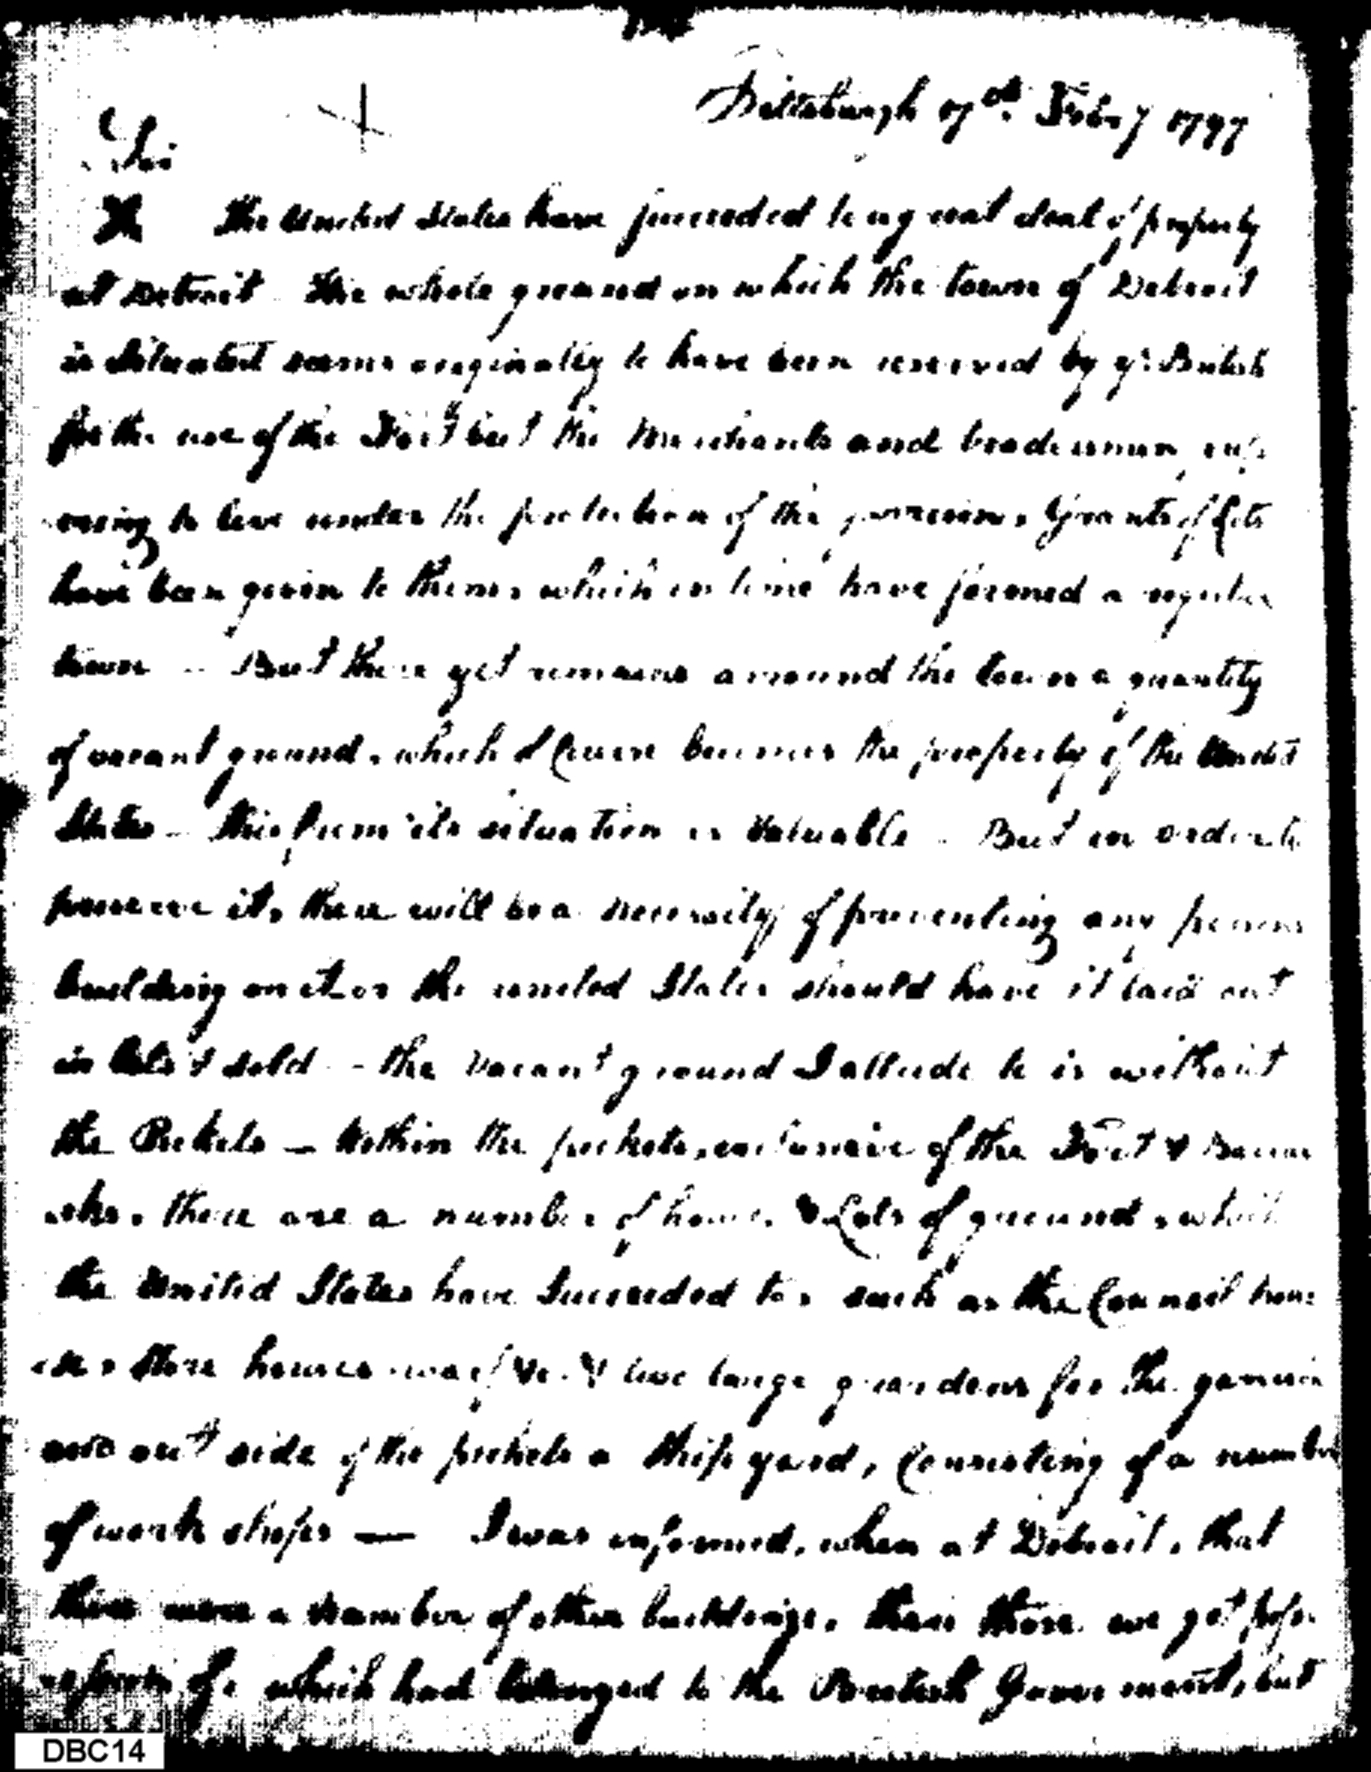 Pittsburgh 17th. Feby 1797
Sir
The United States have succeeded to a great deal of property
at Detroit The whole ground on which the town of Detroit
is Situated seems originally to have been reserved by ye. British
for the use of the Fort but the Merchants and tradesmen
to live under the protection of the garrison, Grants of Lots
have been given to them, which in time have formed a regular
town – But there yet remains arround the town a quantity
of vacant ground, which of Course becomes the property of the United
States – this from its situation is Valuable – But in order to
preserve it, there will be a necessity of preventing any persons
building on it or the united States should have it laid out
in lots & sold – the vacant ground I allude to is without
the Pickets – Within the pickets, exclusive of the Fort & Barra
cks, there are a number of houses & Lots of ground, which
the United States have Succeeded to, such as the Council hou
se, store houses &c. & two large gardens for the garrison
and out side of the pickets a Ship yard, Consisting of a number
of work shops — I was informed, when at Detroit, that
there were a number of other buildings, than those we got poss
of, which had belonged to the British Government, but
DBC14